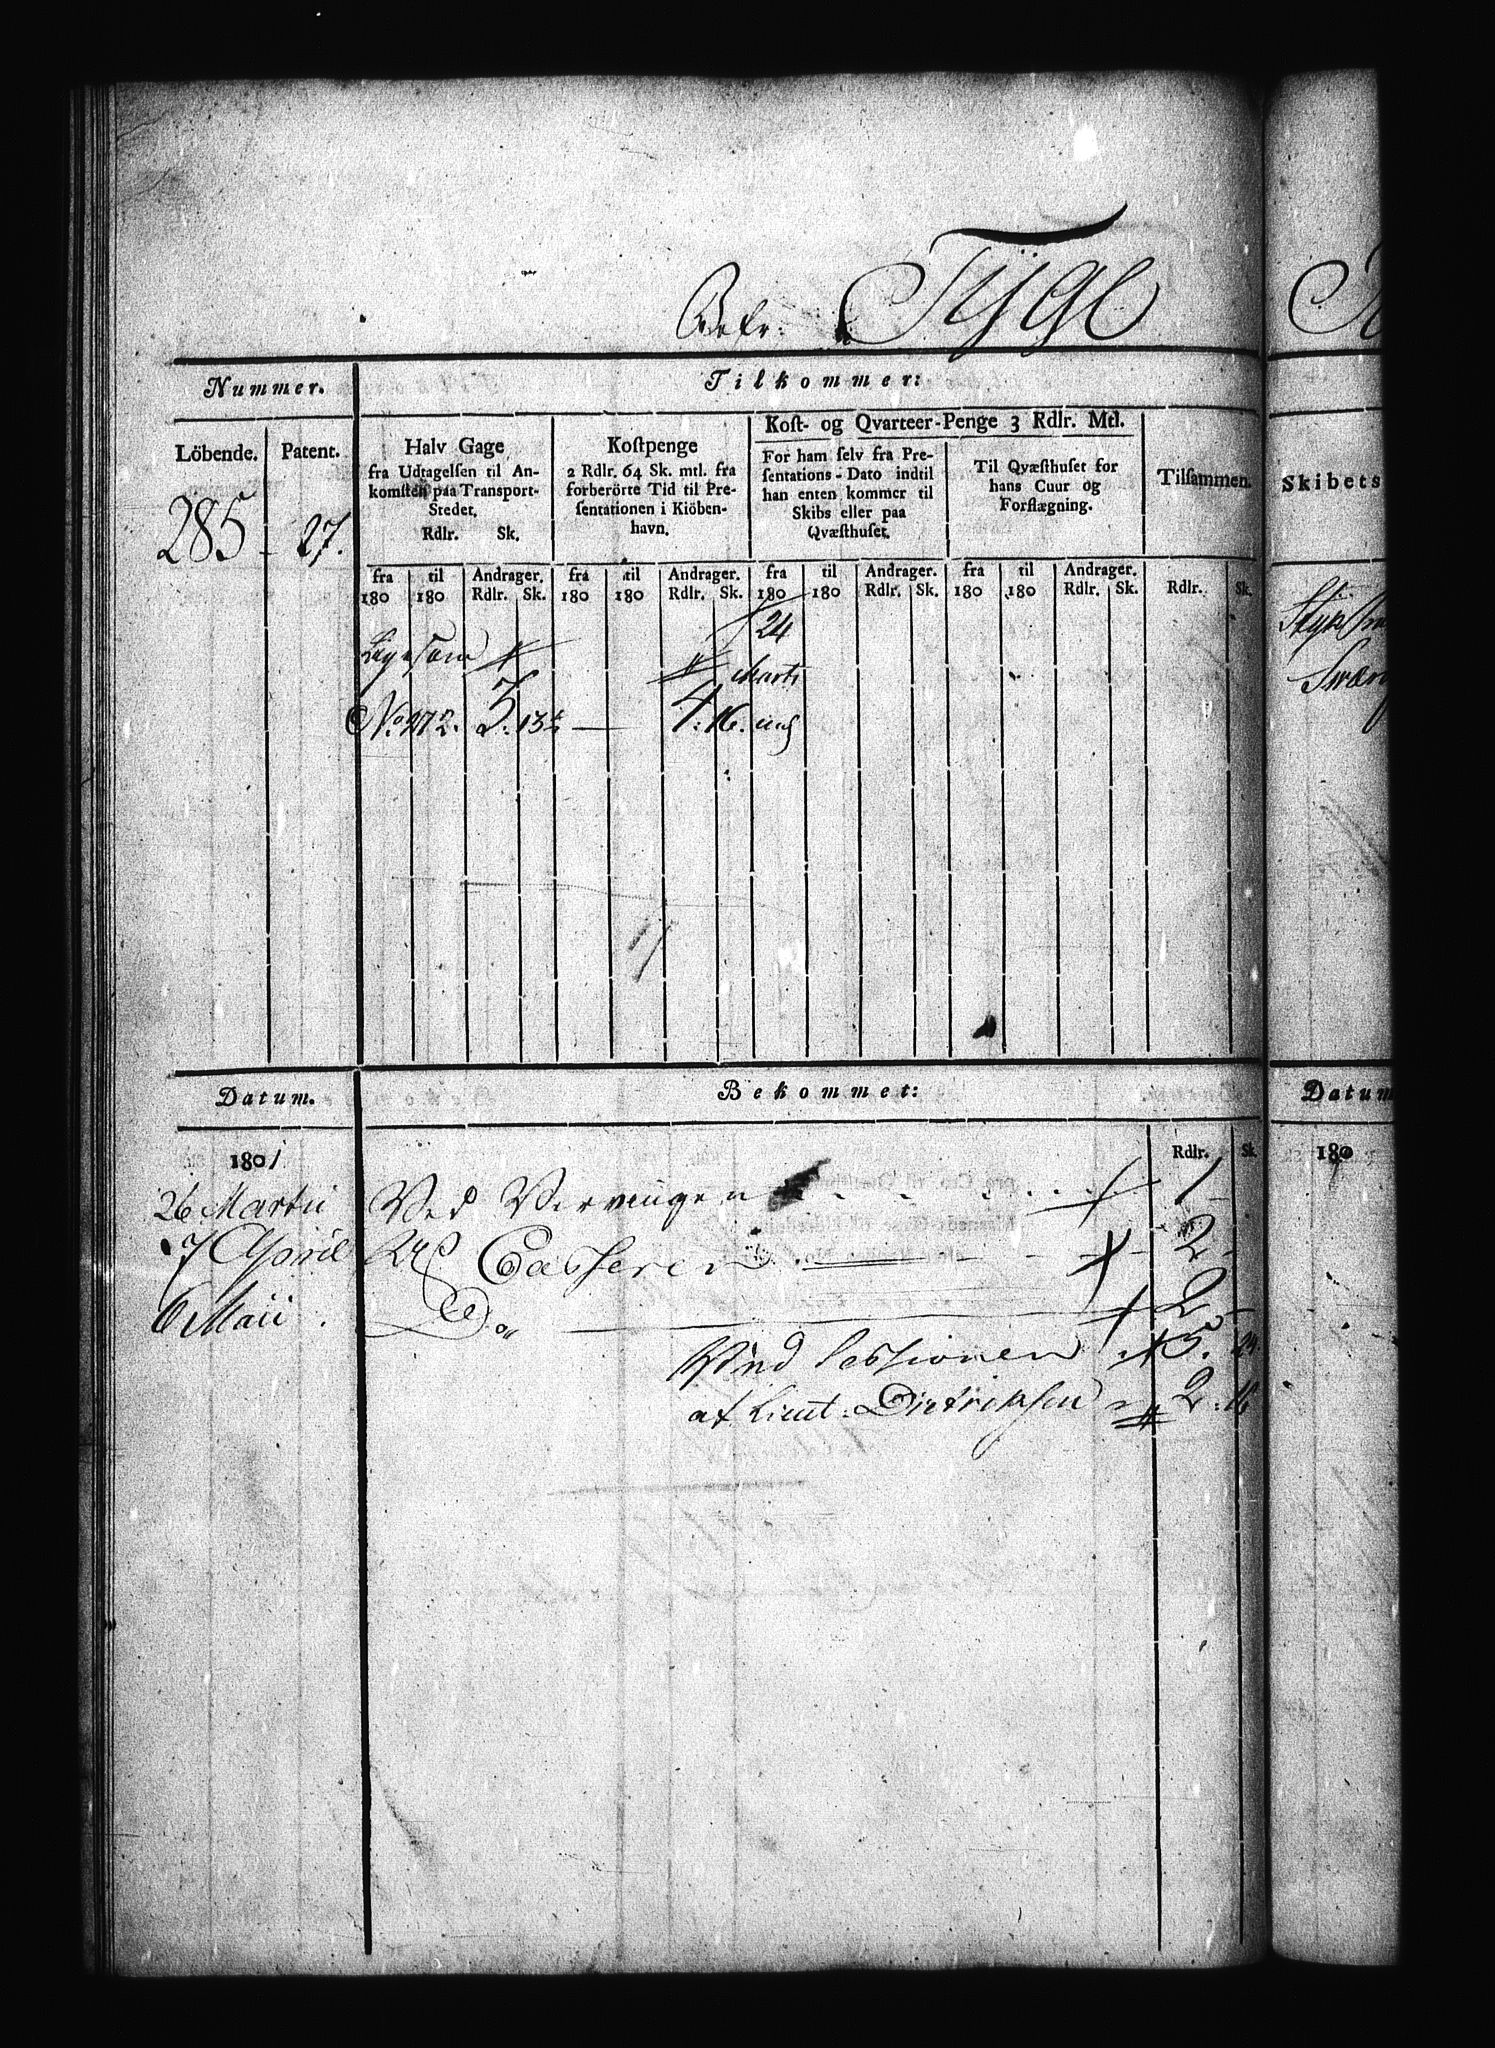 Befr: Tyge
Nummer.
Tilkommer:
Löbende.
Patent.
Halv Gage
fra Udtagelsen til An-
komsten paa Transport-
Stedet.
Rdlr. Sk.
Kostpenge
2 Rdlr. 64 Sk. mtl. fra
forberörte Tid til Pre-
sentationen i Kiöben-
havn.
Kost- og Qvarteer-Penge 3 Rdlr. Mtl.
For ham selv fra Pre-
sentations-Dato indtil
han enten kommer til
Skibs eller paa
Qvæsthuset.
Til Qvæsthuset for
hans Cuur og
Forflægning.
Tilsammen.
Skibets
285 27.
fra til Andrager. fra til Andrager. fra til Andrager. fra til Andrager.
180 180 Rdlr. Sk. 180 180 Rdlr. Sk. 180 180 Rdlr. Sk. 180 180 Rdlr. Sk. Rdlr. Sk.
24
Ligesom Marti
No. 272. 5. 13½ 4. 16.
Datum.
Bekommet:
Datum
1801 Rdlr. Sk
180
26 Martii Ved Vervingen 1
7 April Casseren 2
6 Maii Do 2
Ved Sessionen 5. 24
af Lieut: Diedrichsen 2. 16